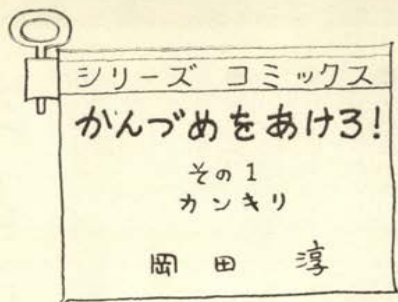 シリーズ コミックス
かんづめをあけろ!
その1
カンキリ
岡田 淳